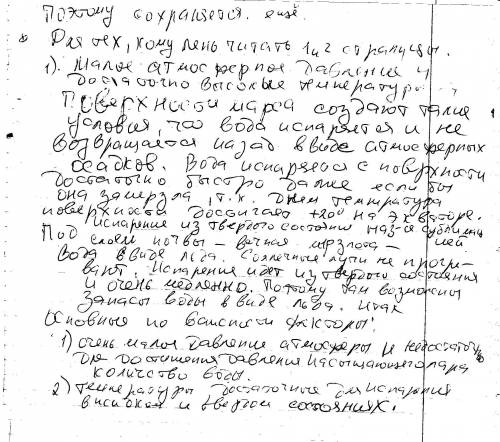 Поэтому сохраняется. ещё.
Для тех, кому лень читать 1 и 2 страницы.
1). Малое атмосферное давление и
достаточно высокие температуры
поверхности марса создают такие
условия, что вода испаряется и не
возвращается назад в виде атмосферных
осадков. Вода испаряется с поврхности
достаточно быстро даже если бы
она замерзла, т.к. днем температура
поверхности достигает +20° на экваторе.
испарение из твердого состояния наз-ся
Под слоем почвы – вечная мерзлота –
вода в виде льда. Солнечные лучи не прогре-
вают. Испарение идет из твердого состояния
и очень медленно. Поэтому там возможны
запасы воды в виде льда. Итак
Основные по важности факторы:
1) очень малое давление атмосферы и недостаточ
для достижения давления насыщающего пара
количество воды.
2) температуры достаточные для испарения
в жидком и твердом состояниях.